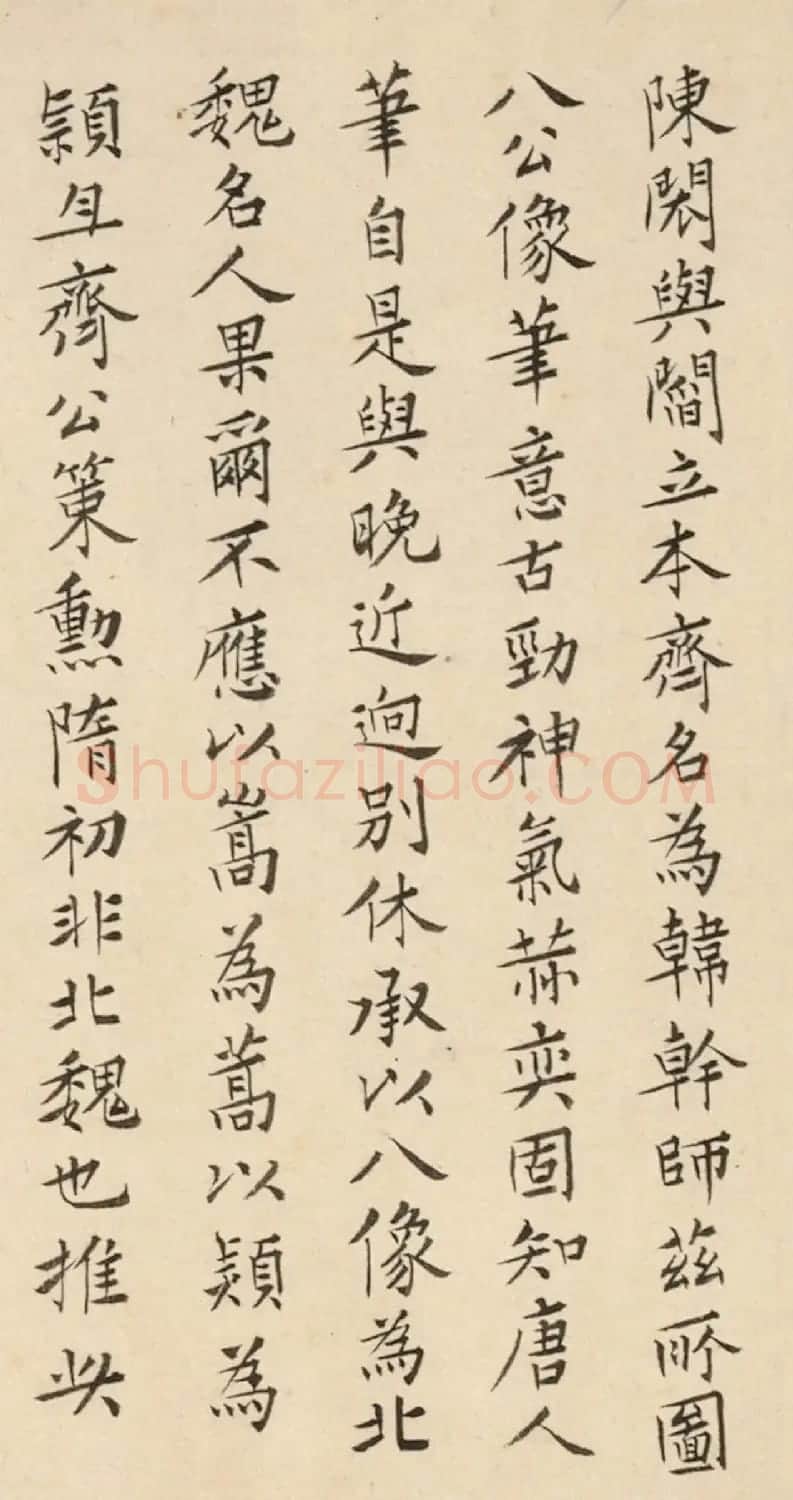 陳閎與閻立本齊名為韓幹師茲所圖
八公像筆意古勁神氣赫奕固知唐人
筆自是與晚近迥別休承以八像為北
魏名人果爾不應以嵩為蒿以熲為
潁且齊公策勳隋初非北魏也推此
Shufaziliao.COM